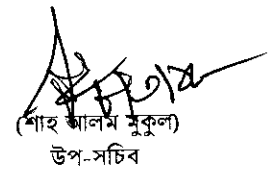 (শাহ আলম মুকুল)
উপ-সচিব